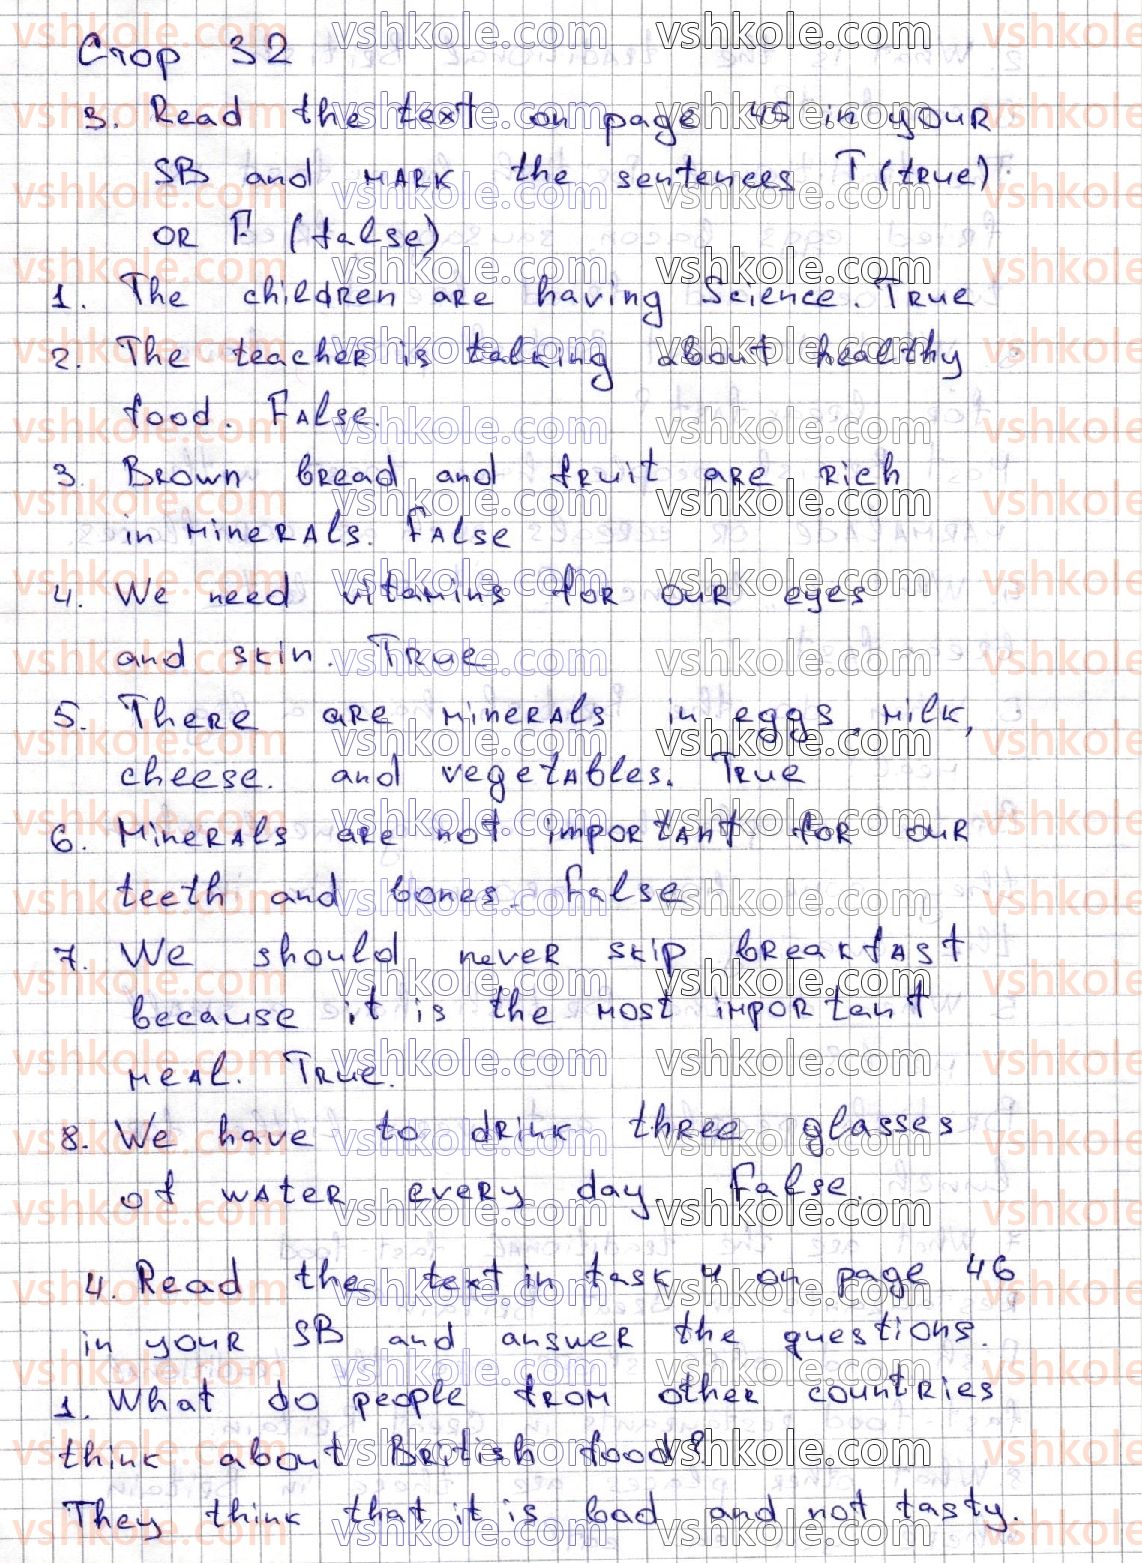 Стор 32
3. Read the text on page 45 in your
SB and mark the sentences T (true)
or F (false)
1. The children are having Science. True
2. The teacher is talking about healthy
food. False.
3. Brown bread and fruit are rich
in minerals. False
4. We need vitamins for our eyes
and skin. True
5. There are minerals in eggs, milk,
cheese. and vegetables. True
6. Minerals are not important for our
teeth and bones. False
7. We should never skip breakfast
because it is the most important
meal. True.
8. We have to drink three glasses
of water every day. False.
4. Read the text in task 4 on page 46
in your SB and answer the questions.
1. What do people from other countries
think about British food?
They think that it is bad and not tasty.